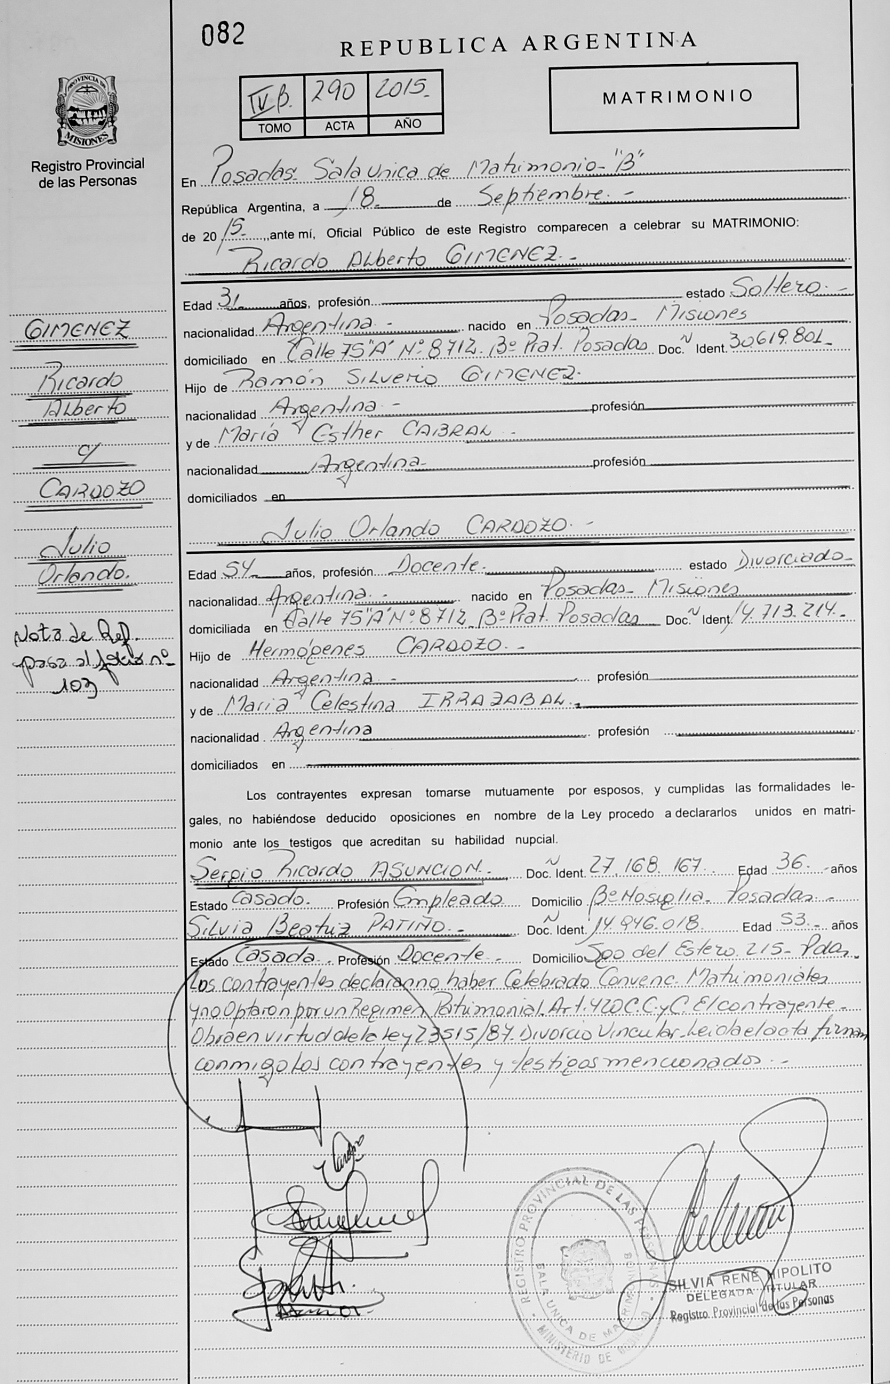 082
REPUBLICA ARGENTINA
IV.B. 290 2015
TOMO ACTA AÑO
MATRIMONIO
PROVINCIA DE MISIONES
Registro Provincial
de las Personas
En Posadas Sala Unica de Matrimonio - "B"
República Argentina, a 18 de Septiembre. -
de 2015, ante mí, Oficial Público de este Registro comparecen a celebrar su MATRIMONIO:
Ricardo Alberto GIMENEZ. -
Edad 31 años, profesión estado Soltero. -
nacionalidad Argentina - nacido en Posadas - Misiones
domiciliado en Calle 75 "A" Nº 8712. Bº Prat. Posadas Doc. N Ident. 30619.801_
Hijo de Ramón Silverio GIMENEZ.
nacionalidad Argentina - profesión
y de María Esther CABRAL -
nacionalidad Argentina - profesión
domiciliados en
Julio Orlando CARDOZO. -
Edad 54 años, profesión Docente. estado Divorciado -
nacionalidad Argentina. - nacido en Posadas - Misiones
domiciliada en Calle 75 "A" Nº 8712. Bº Prat. Posadas Doc. N Ident. 14.713.214. -
Hijo de Hermógenes CARDOZO. -
nacionalidad Argentina - profesión
y de María Celestina IRRAZABAL. -
nacionalidad Argentina profesión
domiciliados en
Los contrayentes expresan tomarse mutuamente por esposos, y cumplidas las formalidades le-
gales, no habiéndose deducido oposiciones en nombre de la Ley procedo a declararlos unidos en matri-
monio ante los testigos que acreditan su habilidad nupcial.
Sergio Ricardo ASUNCION. - Doc. N Ident. 27.168.167. Edad 36. - años
Estado Casado. Profesión Empleado Domicilio Bº Mosiglia - Posadas -
Silvia Beatriz PATIÑO. - Doc. N Ident. 14.946.018. Edad 53. - años
Estado Casada - Profesión Docente - Domicilio Sgo del Estero. 215 - Pdas.
Los contrayentes declaran no haber Celebrado Convenc. Matrimoniales
y no Optaron por un Regimen Patrimonial. Art. 420 C.C. y C. El contrayente -
Obra en virtud de la ley 23515/87. Divorcio Vincular. Leida el acta firman
conmigo los contrayentes y testigos mencionados. -
GIMENEZ
Ricardo
Alberto
c/
CARDOZO
Julio
Orlando.
Nota de Ref.
pasa al folio nº
103
REGISTRO PROVINCIAL DE LAS PERSONAS
SALA UNICA DE
MINISTERIO DE
SILVIA RENE HIPOLITO
DELEGADA TITULAR
Registro Provincial de las Personas